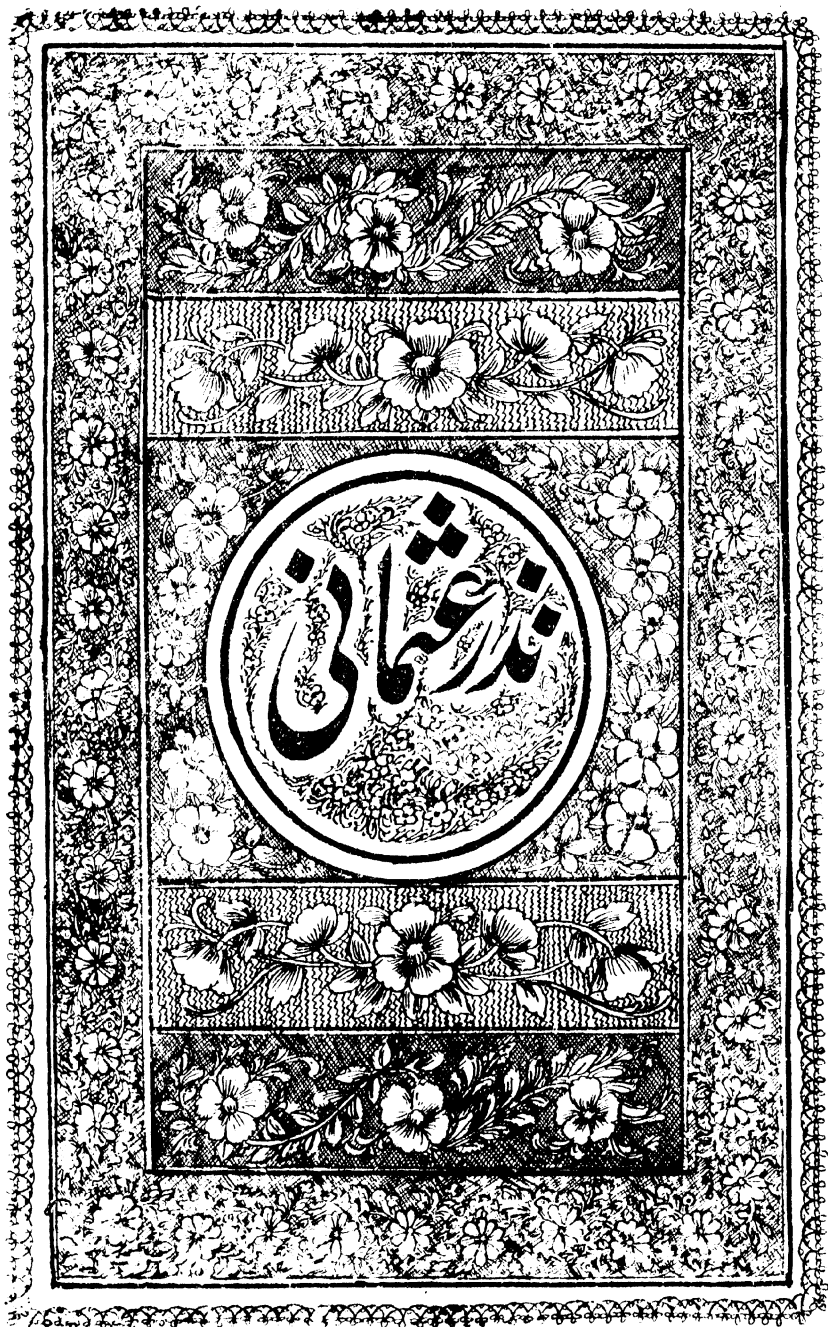 نذر عثمانی